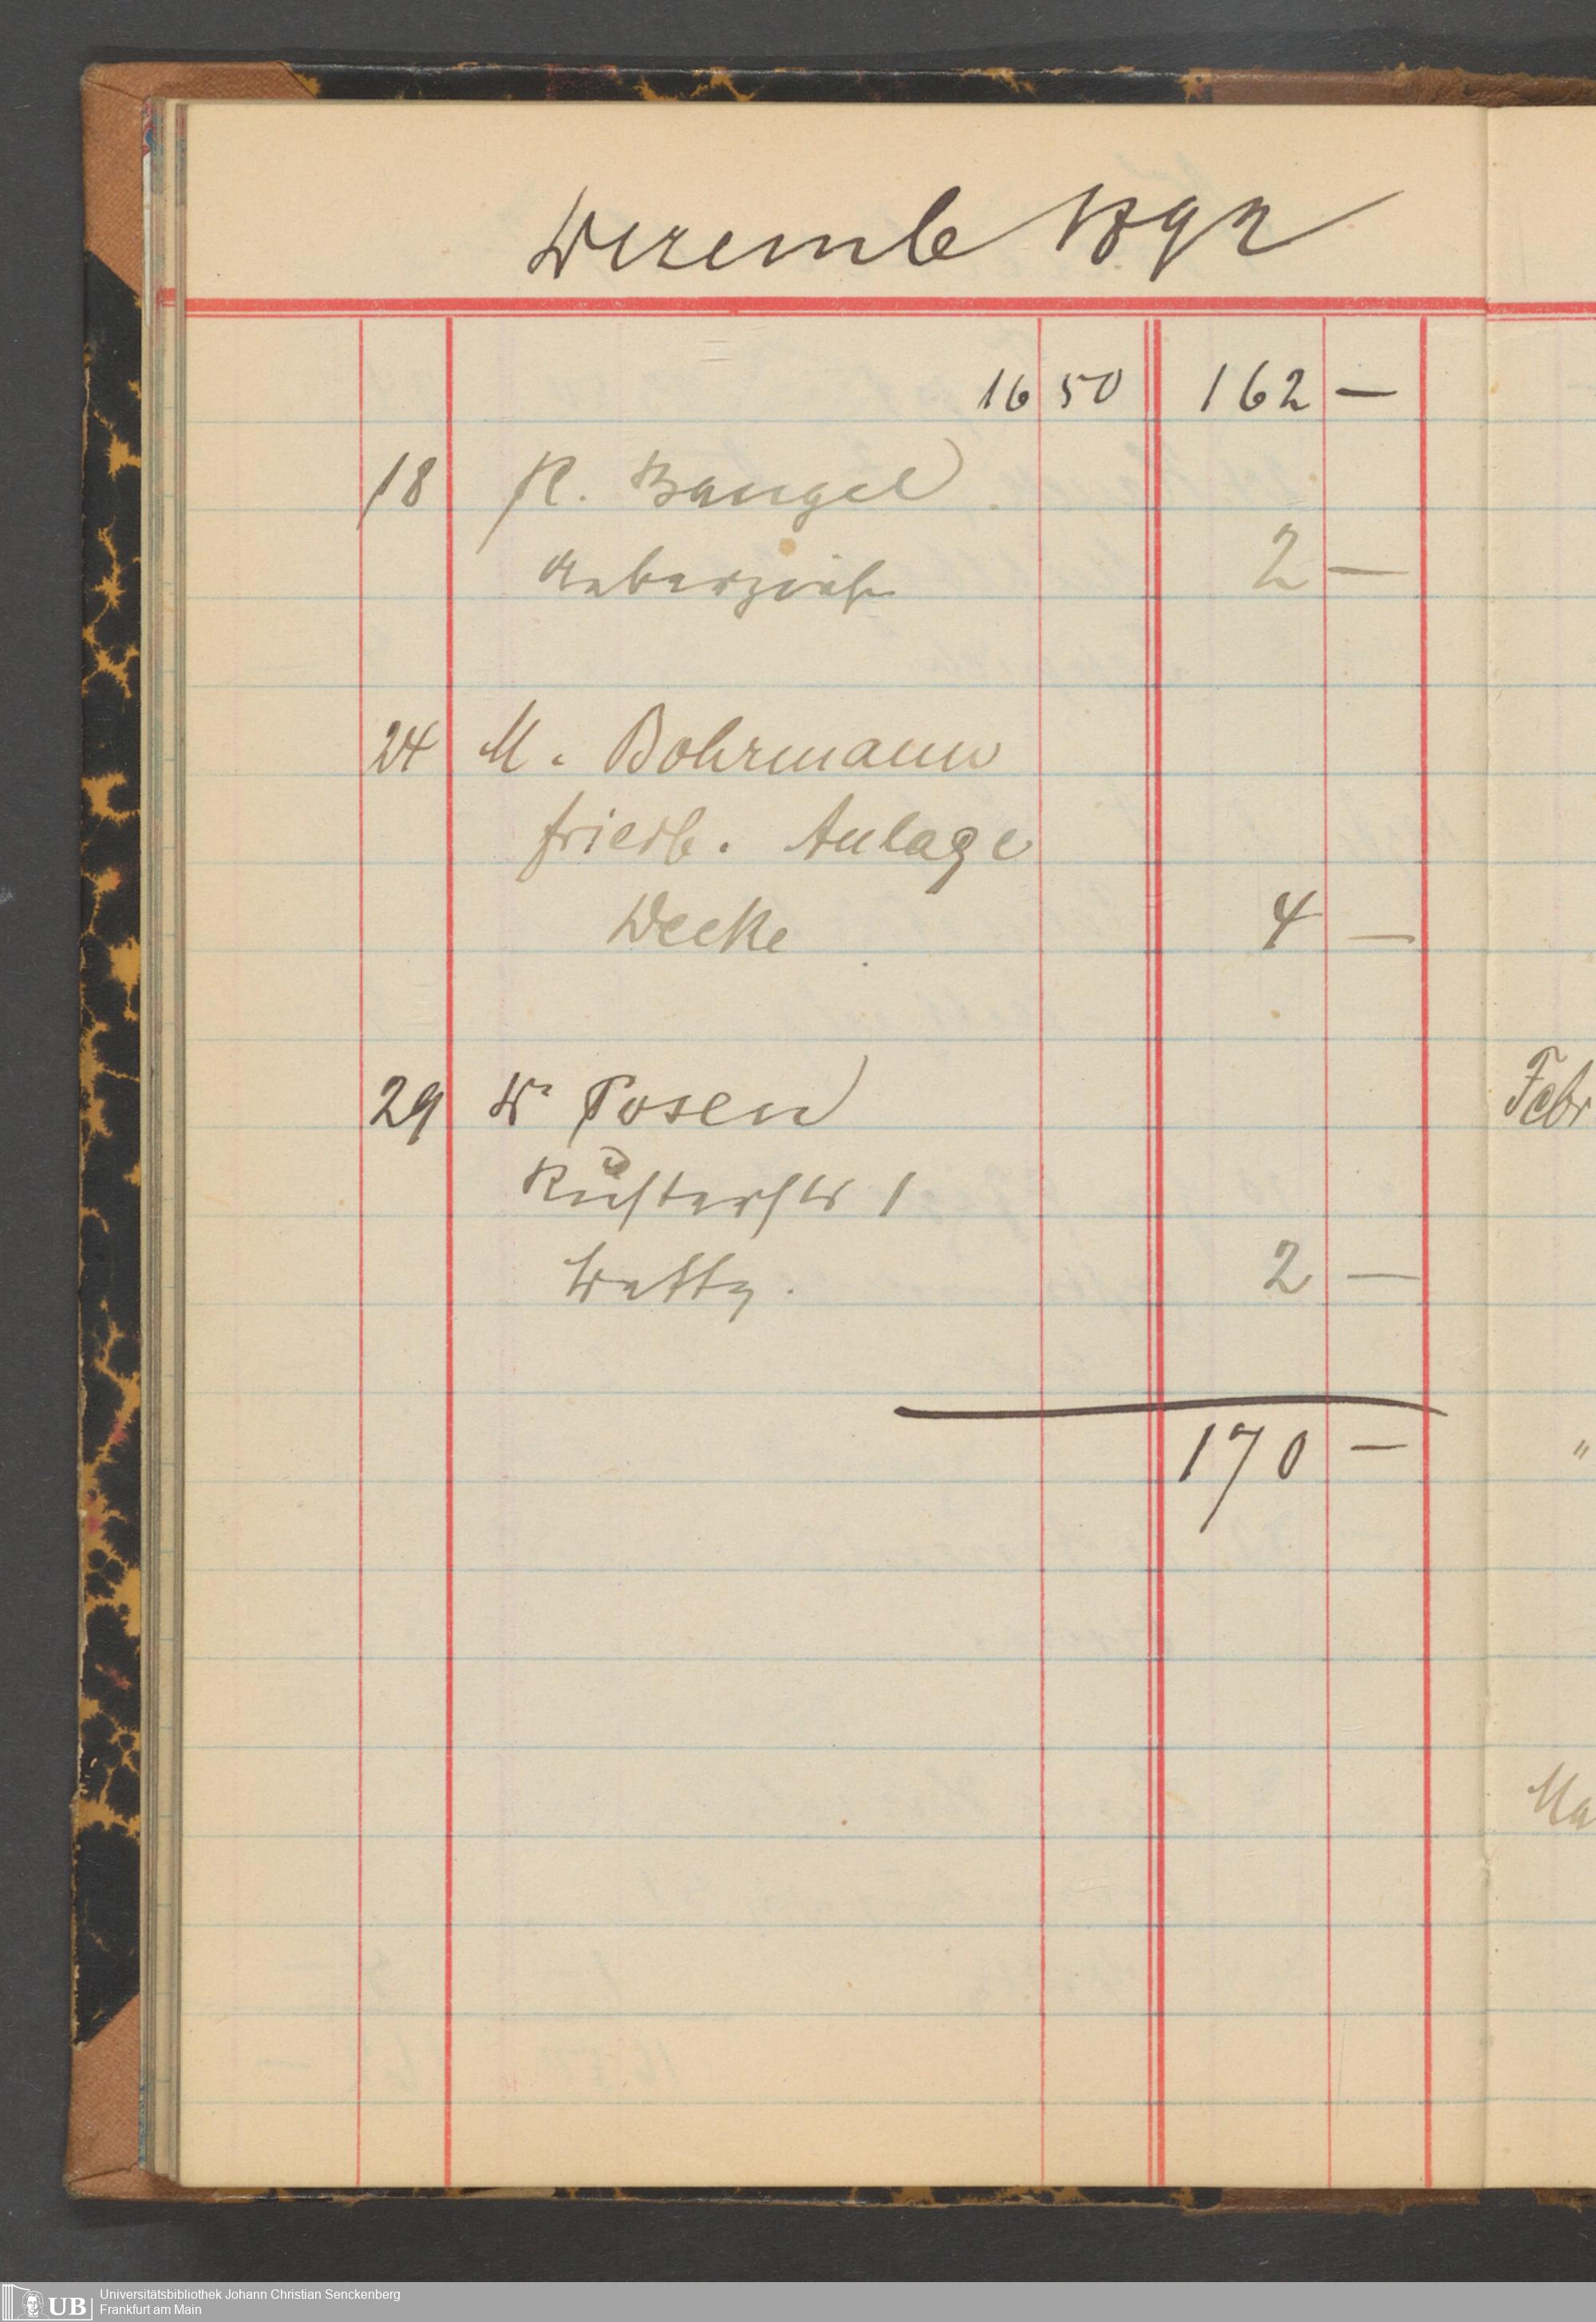 Dezemb 1892
16 50 162 —
18 R. Bangel
Ueberzieh 2 —
24 M. Bohrmann
friedb. Anlage
Decke 4 —
29 Dr Posen
Rüsterstr 1
2 —
170 —
Febr
"
Ma
Universitätsbibliothek Johann Christian Senckenberg
UB Frankfurt am Main